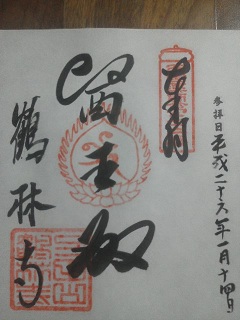 参拝日平成二十六年一月十四日
奉拝
医王殿
鶴林寺